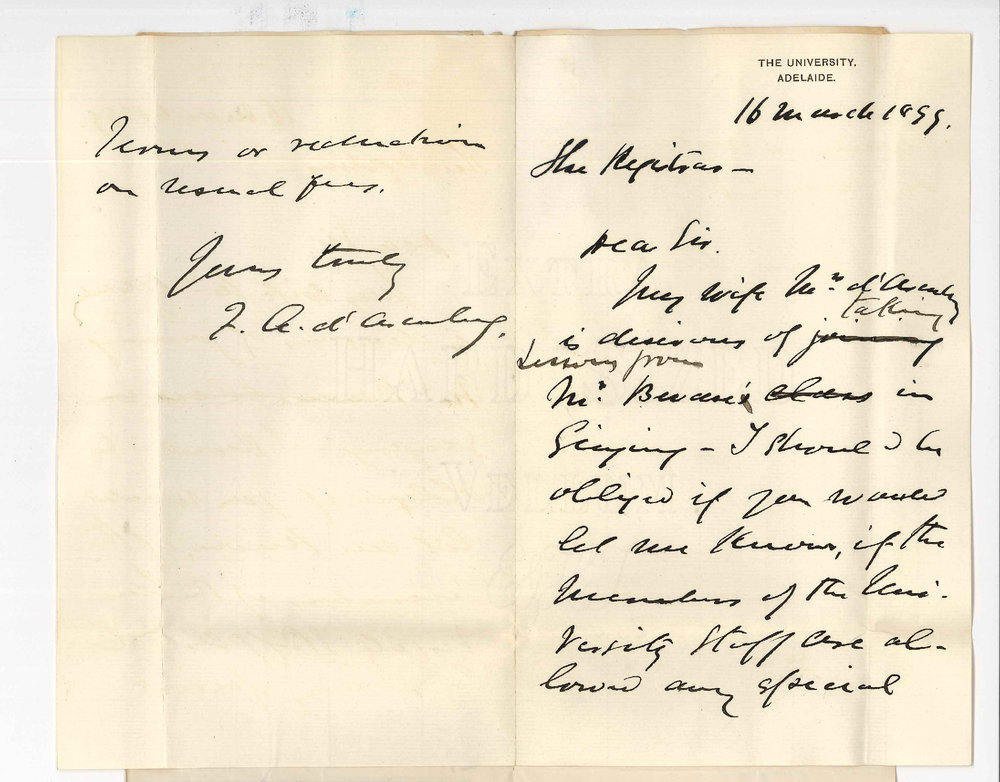 THE UNIVERSITY,
ADELAIDE.
16 March 1899.
The Registrar —
Dear Sir.
My wife Mrs d'Arenberg
taking
is desirous of joining
Lessons from
Mr. Bevan's class in
Singing - I should be
obliged if you would
let me know, if the
Members of the Uni-
versity Staff are al-
lowed any special
Terms or reduction
on usual fees.
Yours truly
F. A. d'Arenberg.